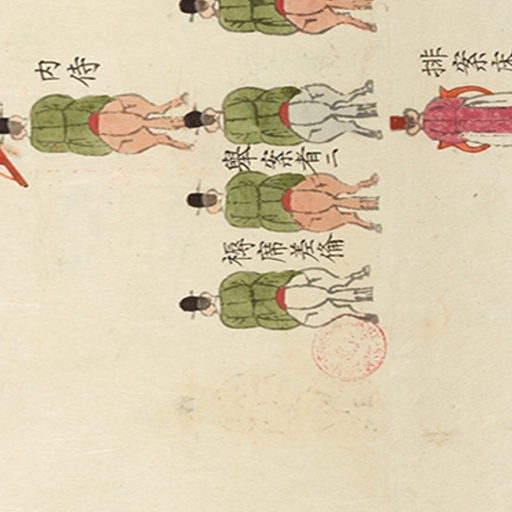 内侍
排案床
擧案者二
褥席差俻